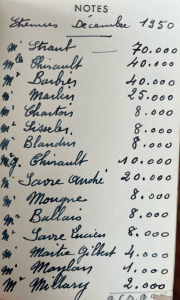 NOTES
Etrennes Décembre 1950
Mr Straut 70.000
Mlle Thirault 40.000
Mr Barbier 40.000
Mr Marlin 25.000
Mr Charton 8.000
Mr Sisseler 8.000
Mr Blandin 8.000
Thirault 10.000
Mr Favre André 20.000
Mr Mougne 8.000
Mr Ballais 8.000
Mr Favre Lucien 8.000
Mr Maitre Gilbert 4.000
Mr Maylan 1.000
Mr Millary 2.000